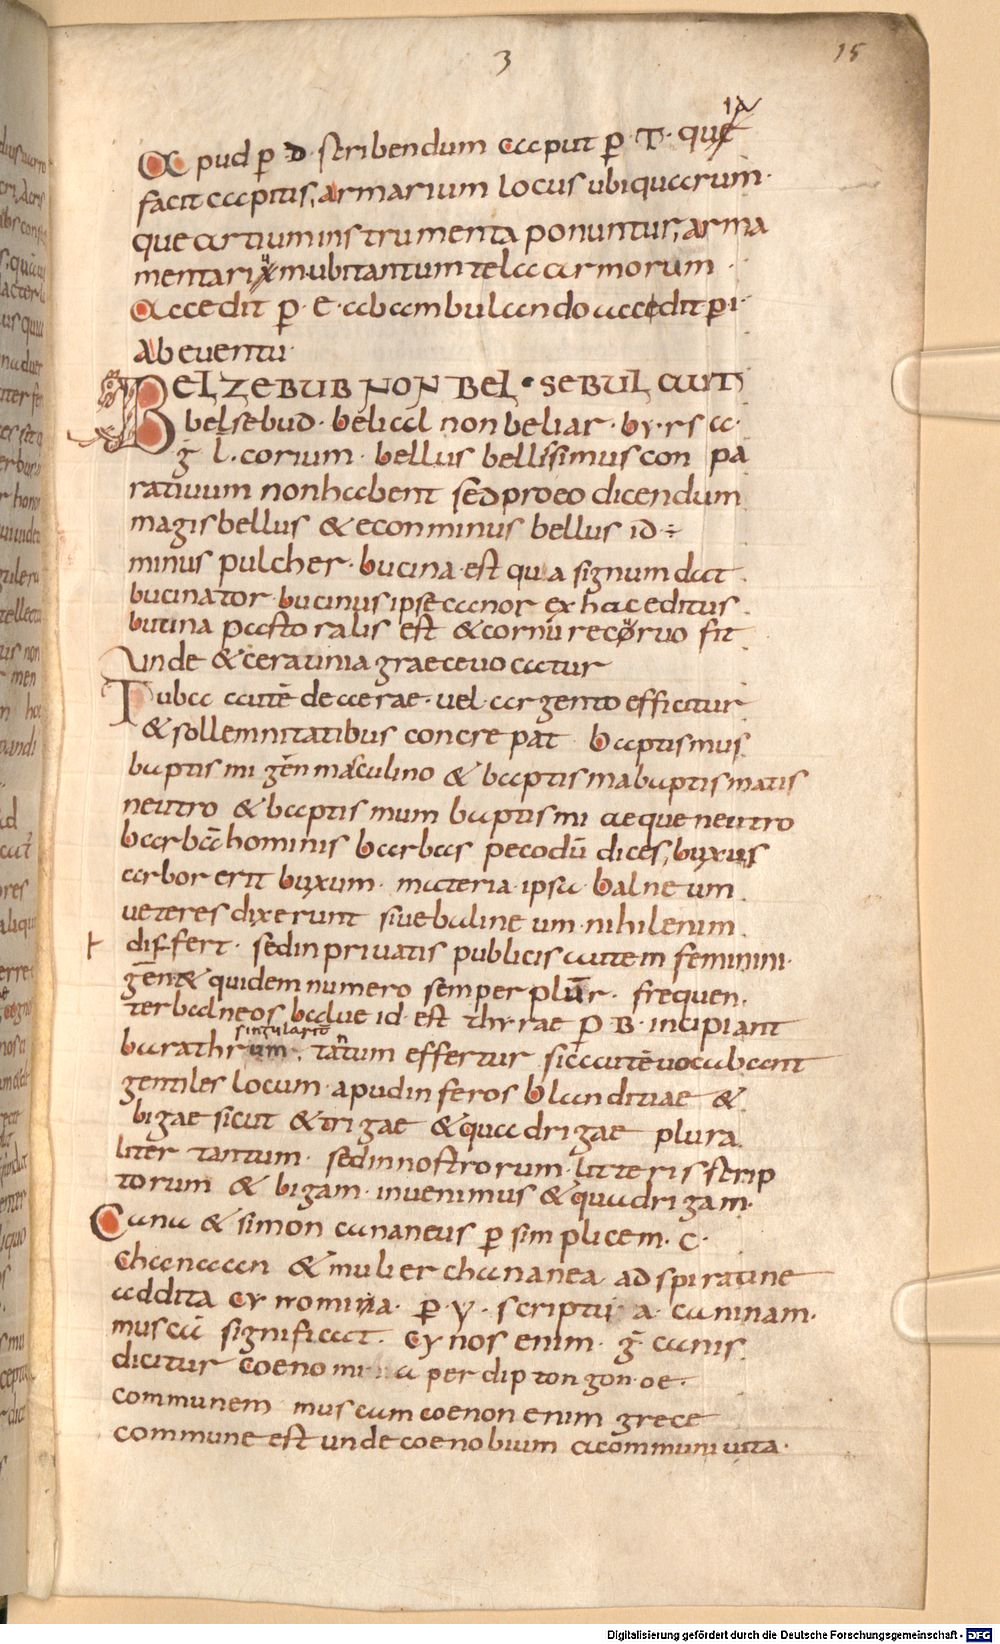 3 15
Apud ꝑ D scribendum caput ꝑ T· quia
facit capitis, armarium locus ubi quarum·
que artium instrumenta ponuntur, arma
mentarium ubi tantum tela armorum ·
Accedit ꝑ · E · ab ambulando accedit ꝑ i·
Ab eventu·
BELZEBUB NON BEL·SEBUL aut
belsebud · belial non beliar · byrsa·
g̅ l̅ · corium · bellus bellissimus con pa
rativum non habent sed pro eo dicendum
magis bellus & e con minus bellus id ÷
minus pulcher · bucina · est qua signum dat ·
bucinator · bucinus ipse canor ex hac editus ·
bucina pastoralis est & cornu recuruo fit
unde & ceratinia graece vocatur
Tuba autē de aerae · uel argento efficitur
& sollemnitatibus concrepat baptismus
baptismi gēn masculino & baptisma baptismatis
neutro & baptismum baptismi aeque neutro
barbā hominis barbas pecodū dices, buxus
arbor erit buxum · materia ipsa · balneum
ueteres dixerunt siue balineum · nihil enim
differt · sed in priuatis publicis autem feminini·
gēn & quidem numero semper plūr · frequen·
ter balneos balue id · est thyrae ꝑ B · incipiant
singulariter
barathrum · tantum effertur sic autē uocabant
gentiles locum · apud inferos blanditiae &
bigae sicut & trigae & quadrigae plura
liter tantum · sed in nostrorum · litteris scrip
torum & bigam · inuenimus & quadrigam·
Cana & simon cananeus ꝑ simplicem · c ·
chanaan & mulier chananea · adspiratine
addita cynomina · ꝑ · y · scriptu a · caninam·
muscā significat · cynos enim · g̅ canis
dicitur coenomia per diptongon · oe ·
communem muscam coenon enim grece
commune est unde coenobium a communi uita ·
Digitalisierung gefördert durch die Deutsche Forschungsgemeinschaft - DFG